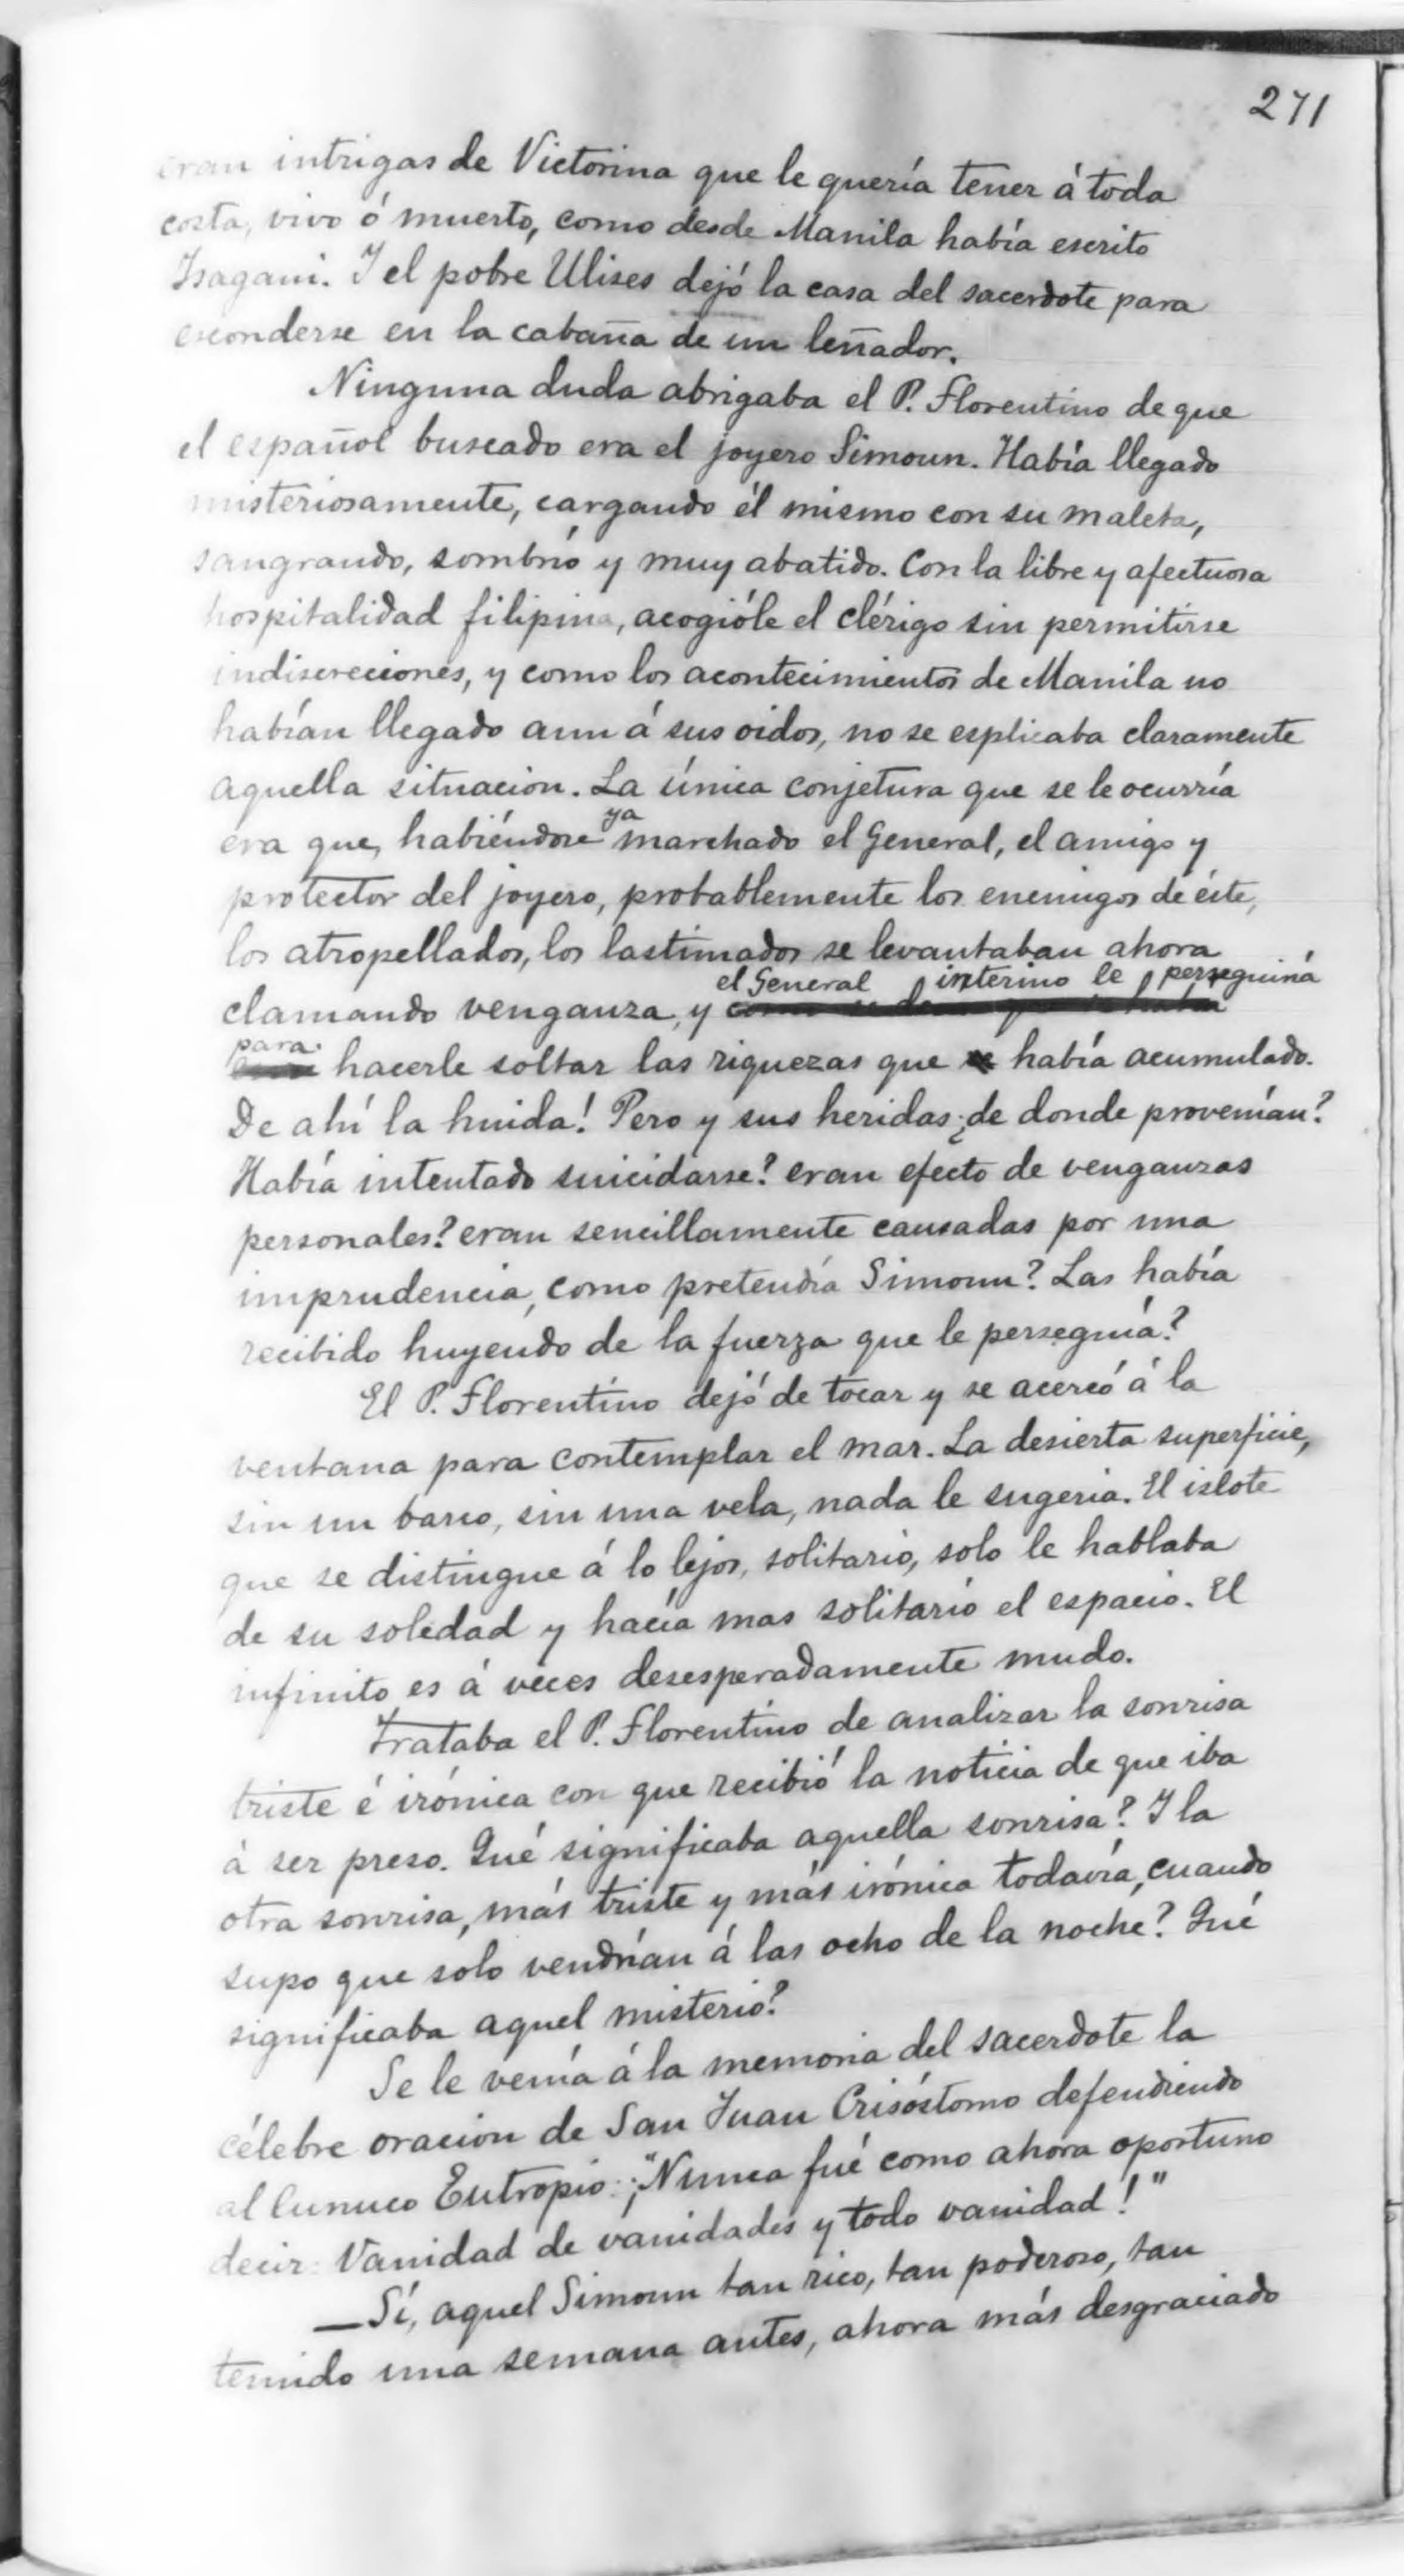 271
eran intrigas de Victorina que le quería tener á toda
costa, vivo ó muerto, como desde Manila había escrito
Isagani. Y el pobre Ulises dejó la casa del sacerdote para
esconderse en la cabaña de un leñador.
Ninguna duda abrigaba el P. Florentino de que
el español buscado era el joyero Simoun. Había llegado
misteriosamente, cargando él mismo con su maleta,
sangrando, sombrío y muy abatido. Con la libre y afectuosa
hospitalidad filipina, acogióle el clérigo sin permitirse
indiscreciones, y como los acontecimientos de Manila no
habían llegado aun á sus oidos, no se esplicaba claramente
aquella situacion. La única conjetura que se le ocurría
era que, habiéndose ya marchado el General, el amigo y
protector del joyero, probablemente los enemigos de éste,
los atropellados, los lastimados se levantaban ahora
clamando venganza, y el General interino le perseguiría
para hacerle soltar las riquezas que había acumulado.
De ahí la huida! Pero y sus heridas ¿de donde provenían?
Había intentado suicidarse? eran efecto de venganzas
personales? eran sencillamente causadas por una
imprudencia, como pretendía Simoun? Las había
recibido huyendo de la fuerza que le perseguía?
El P. Florentino dejó de tocar y se acercó á la
ventana para contemplar el mar. La desierta superficie,
sin un barco, sin una vela, nada le sugeria. El islote
que se distingue á lo lejos, solitario, solo le hablaba
de su soledad y hacía mas solitario el espacio. El
infinito es á veces desesperadamente mudo.
Trataba el P. Florentino de analizar la sonrisa
triste é irónica con que recibió la noticia de que iba
á ser preso. Qué significaba aquella sonrisa? Y la
otra sonrisa, más triste y más irónica todavía, cuando
supo que solo vendrían á las ocho de la noche? Qué
significaba aquel misterio?
Se le venía á la memoria del sacerdote la
célebre oracion de San Juan Crisóstomo defendiendo
al Eunuco Eutropio: ¡"Nunca fué como ahora oportuno
decir: Vanidad de vanidades y todo vanidad!"
—Sí, aquel Simoun tan rico, tan poderoso, tan
temido una semana antes, ahora más desgraciado